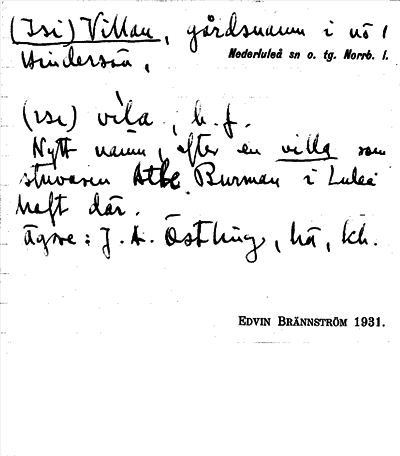 (Isi) Villan, gårdsnamn i nö 1
Hindersön,
Nederluleå sn o. tg. Norrb. l.
(ısı) vila, b. f.
Nytt namn, efter en villa som
stuvaren Burman i Luleå
haft där.
Ägare: J. A. Östling, ha,
EDVIN BRÄNNSTRÖM 1931.